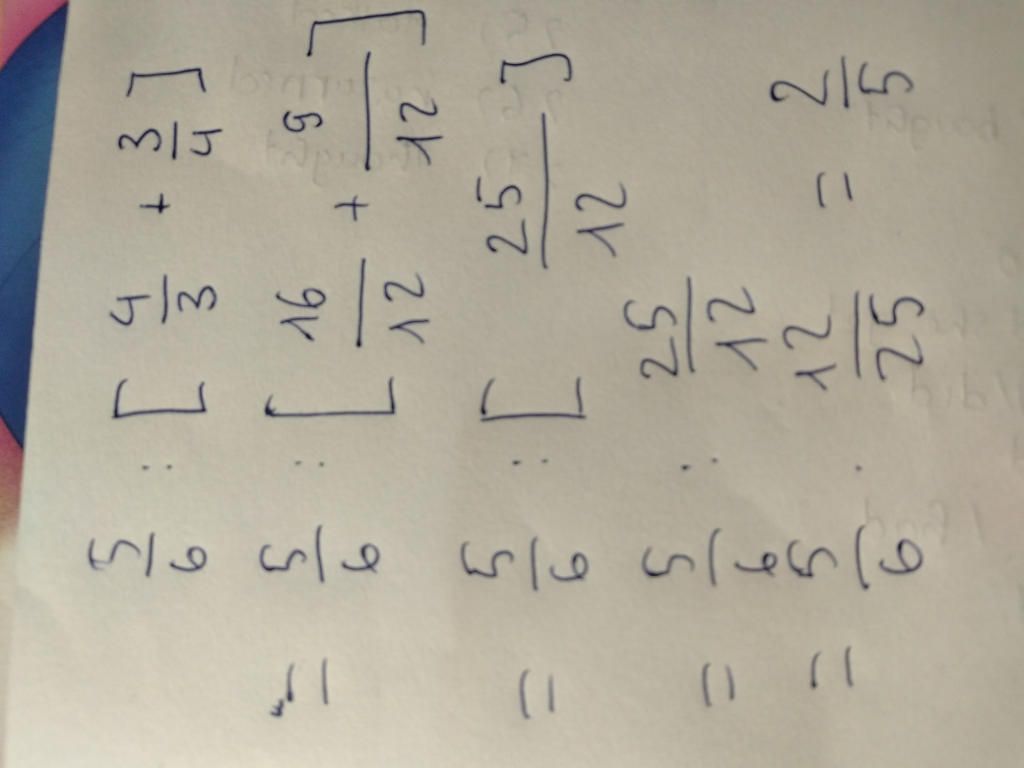 5/6 : [4/3 + 3/4]
= 5/6 : [16/12 + 9/12]
= 5/6 : [25/12]
= 5/6 : 25/12
= 5/6 . 12/25 = 2/5